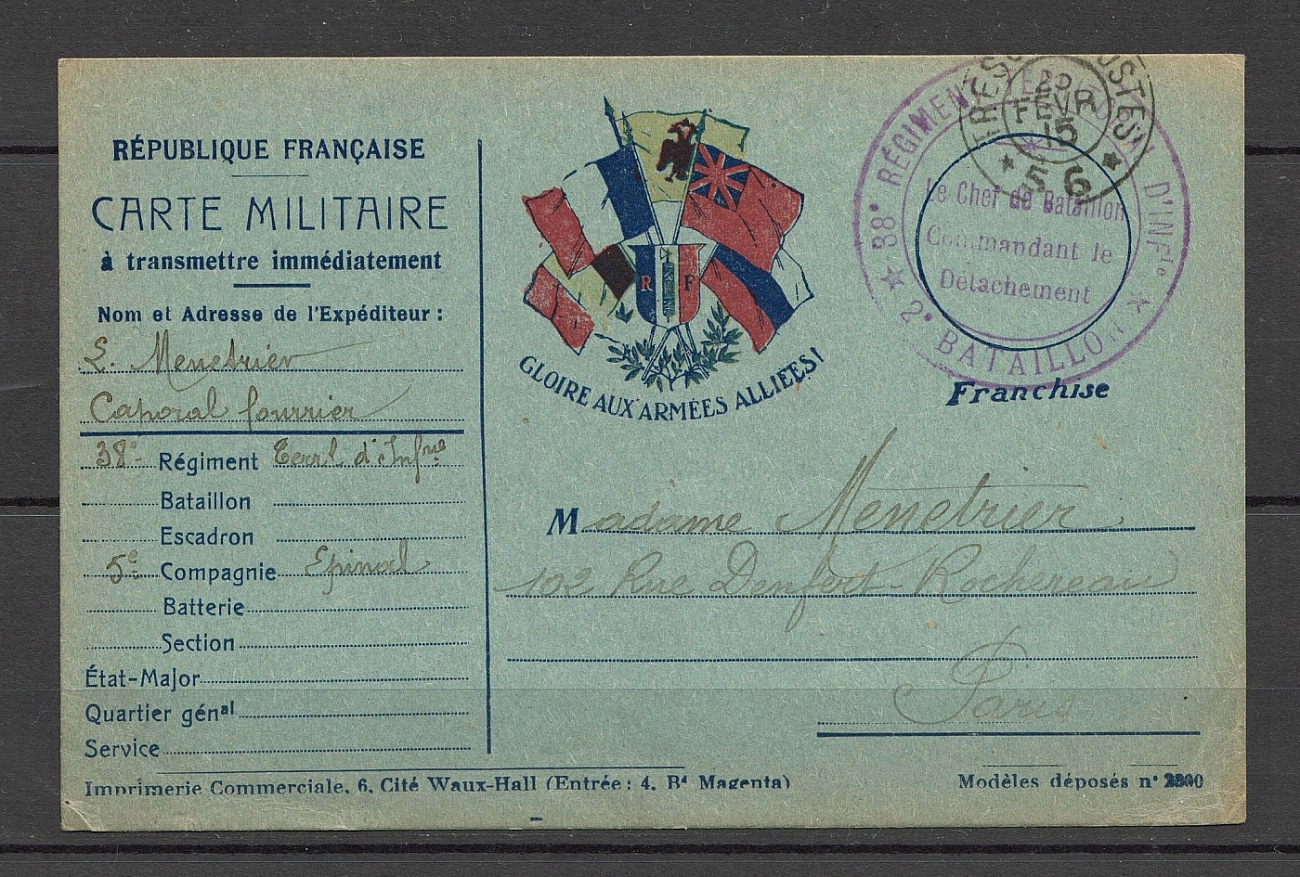 RÉPUBLIQUE FRANÇAISE
CARTE MILITAIRE
à transmettre immédiatement
Nom et Adresse de l'Expéditeur :
L. Menetrier
Caporal fourrier
38e Régiment Terrl d'Infrie
Bataillon
Escadron
5e Compagnie Epinal
Batterie
Section
État-Major
Quartier génal
Service
Imprimerie Commerciale, 6, Cité Waux-Hall (Entrée : 4, Bd Magenta)
R F
GLOIRE AUX ARMÉES ALLIÉES !
38e RÉGIMENT D'INFie
2e BATAILLON
Le Chef de Bataillon
Commandant le
Détachement
POSTES
20
FEVR
15
56
Franchise
Madame Menetrier
102 Rue Denfert-Rochereau
Paris
Modèles déposés no